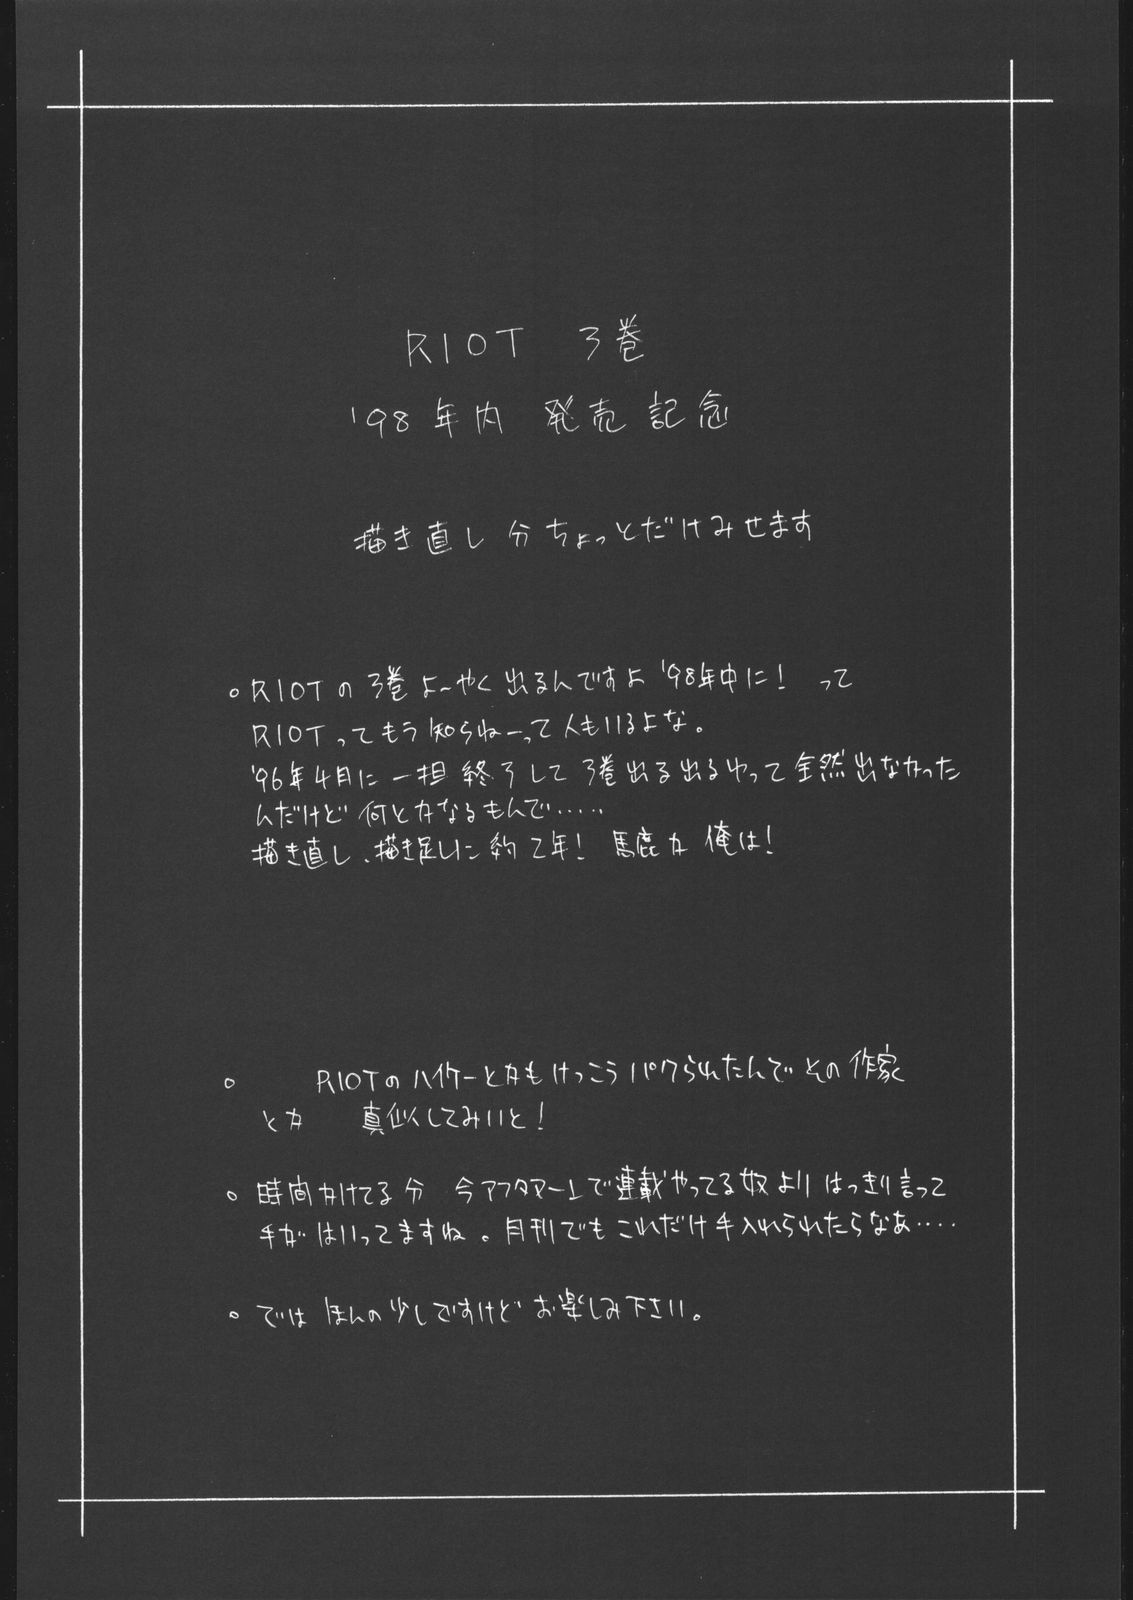 RIOT 3巻
'98年内 発売記念
描き直し分ちょっとだけみせます
○RIOTの3巻よ〜やく出るんですよ'98年中に! って
RIOTってもう知らねーって人もいるよな。
'96年4月に一担終了して3巻出る出るゆって全然出なかった
んだけど何とかなるもんで・・・・・
描き直し、描き足しに約2年! 馬鹿か俺は!
○ RIOTのハイケーとかもけっこうパクられたんでその作家
とか 真似してみいと!
○時間かけてる分 今アフタヌーンで連載やってる奴よりはっきり言って
手がはいってますね。月刊でもこれだけ手入れられたらなあ・・・・
○ではほんの少しですけどお楽しみ下さい。